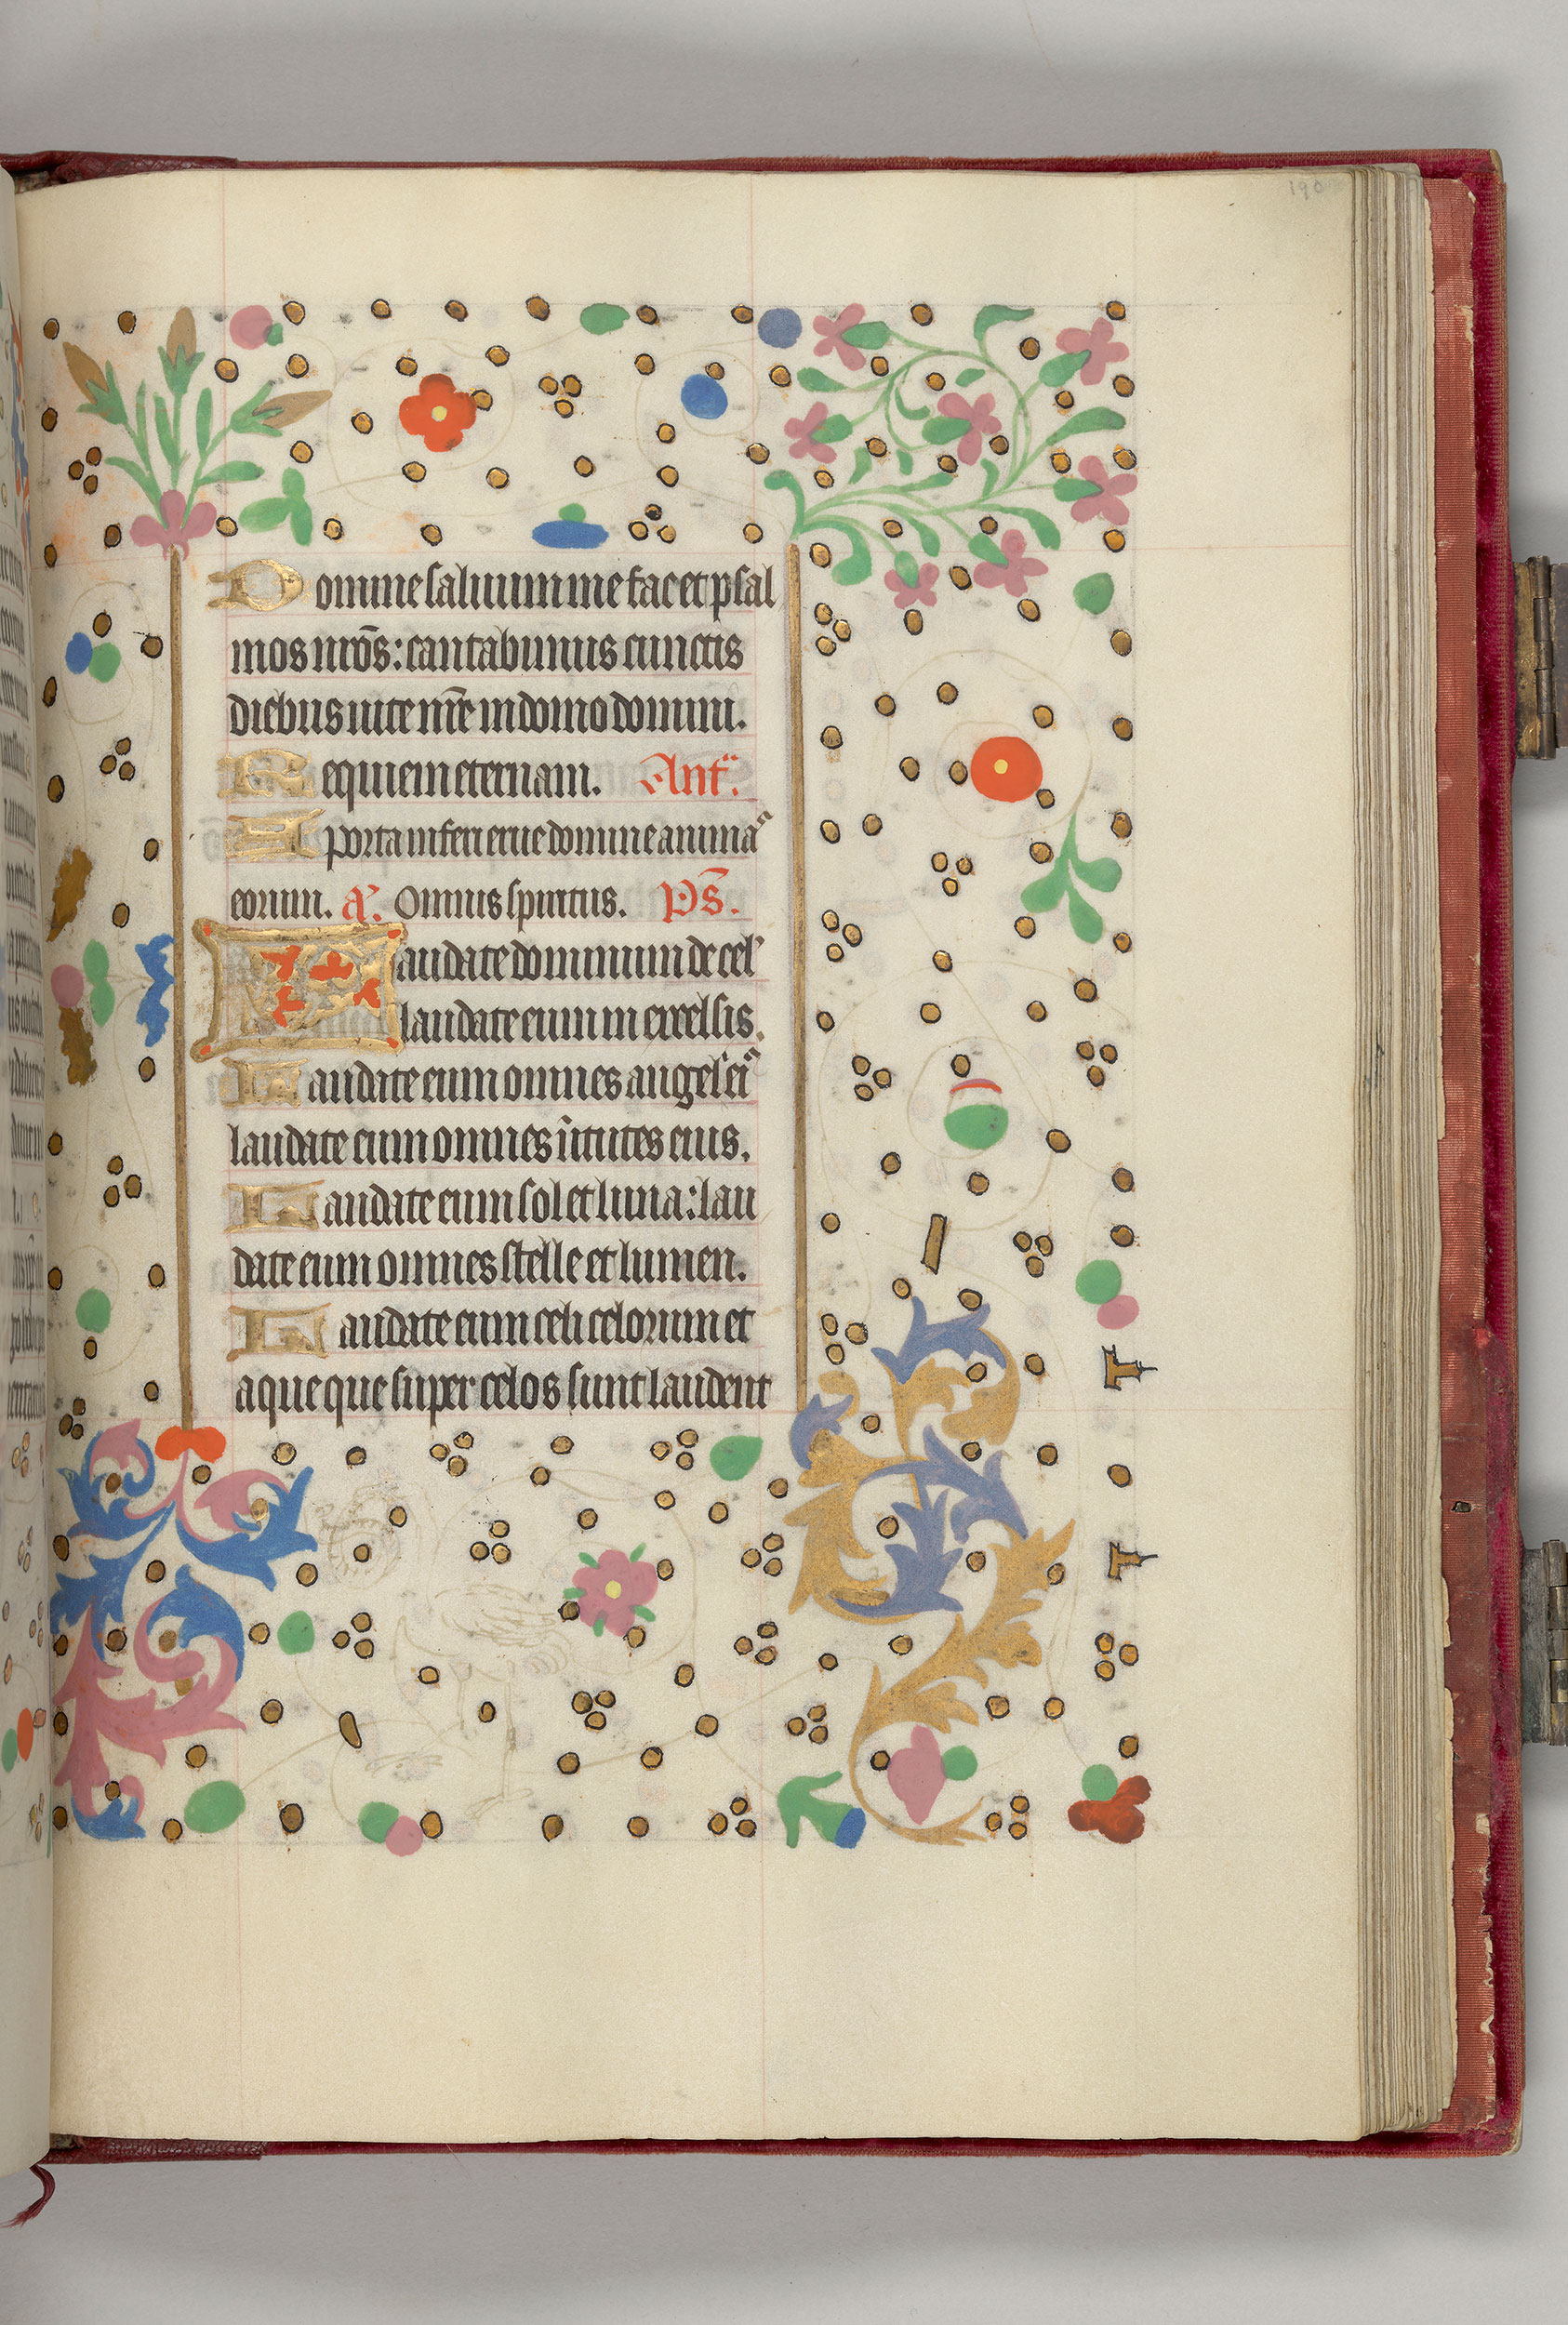 190
Domine saluum me fac et psal
mos nr̄os: cantabimus cunctis
diebus uite nr̄e in domo domini.
Requiem eternam. Antᵃ.
A porta inferi erue domine animaᵃ
eorum. a᷒. Omnis spiritus. Ps̄.
Laudate dominum de cel'
laudate eum in excelsis.
Laudate eum omnes angel'eiᵃ
laudate eum omnes ūtutes eius.
Laudate eum sol et luna: lau
date eum omnes stelle et lumen.
Laudate eum celi celorum et
aque que super celos sunt laudent